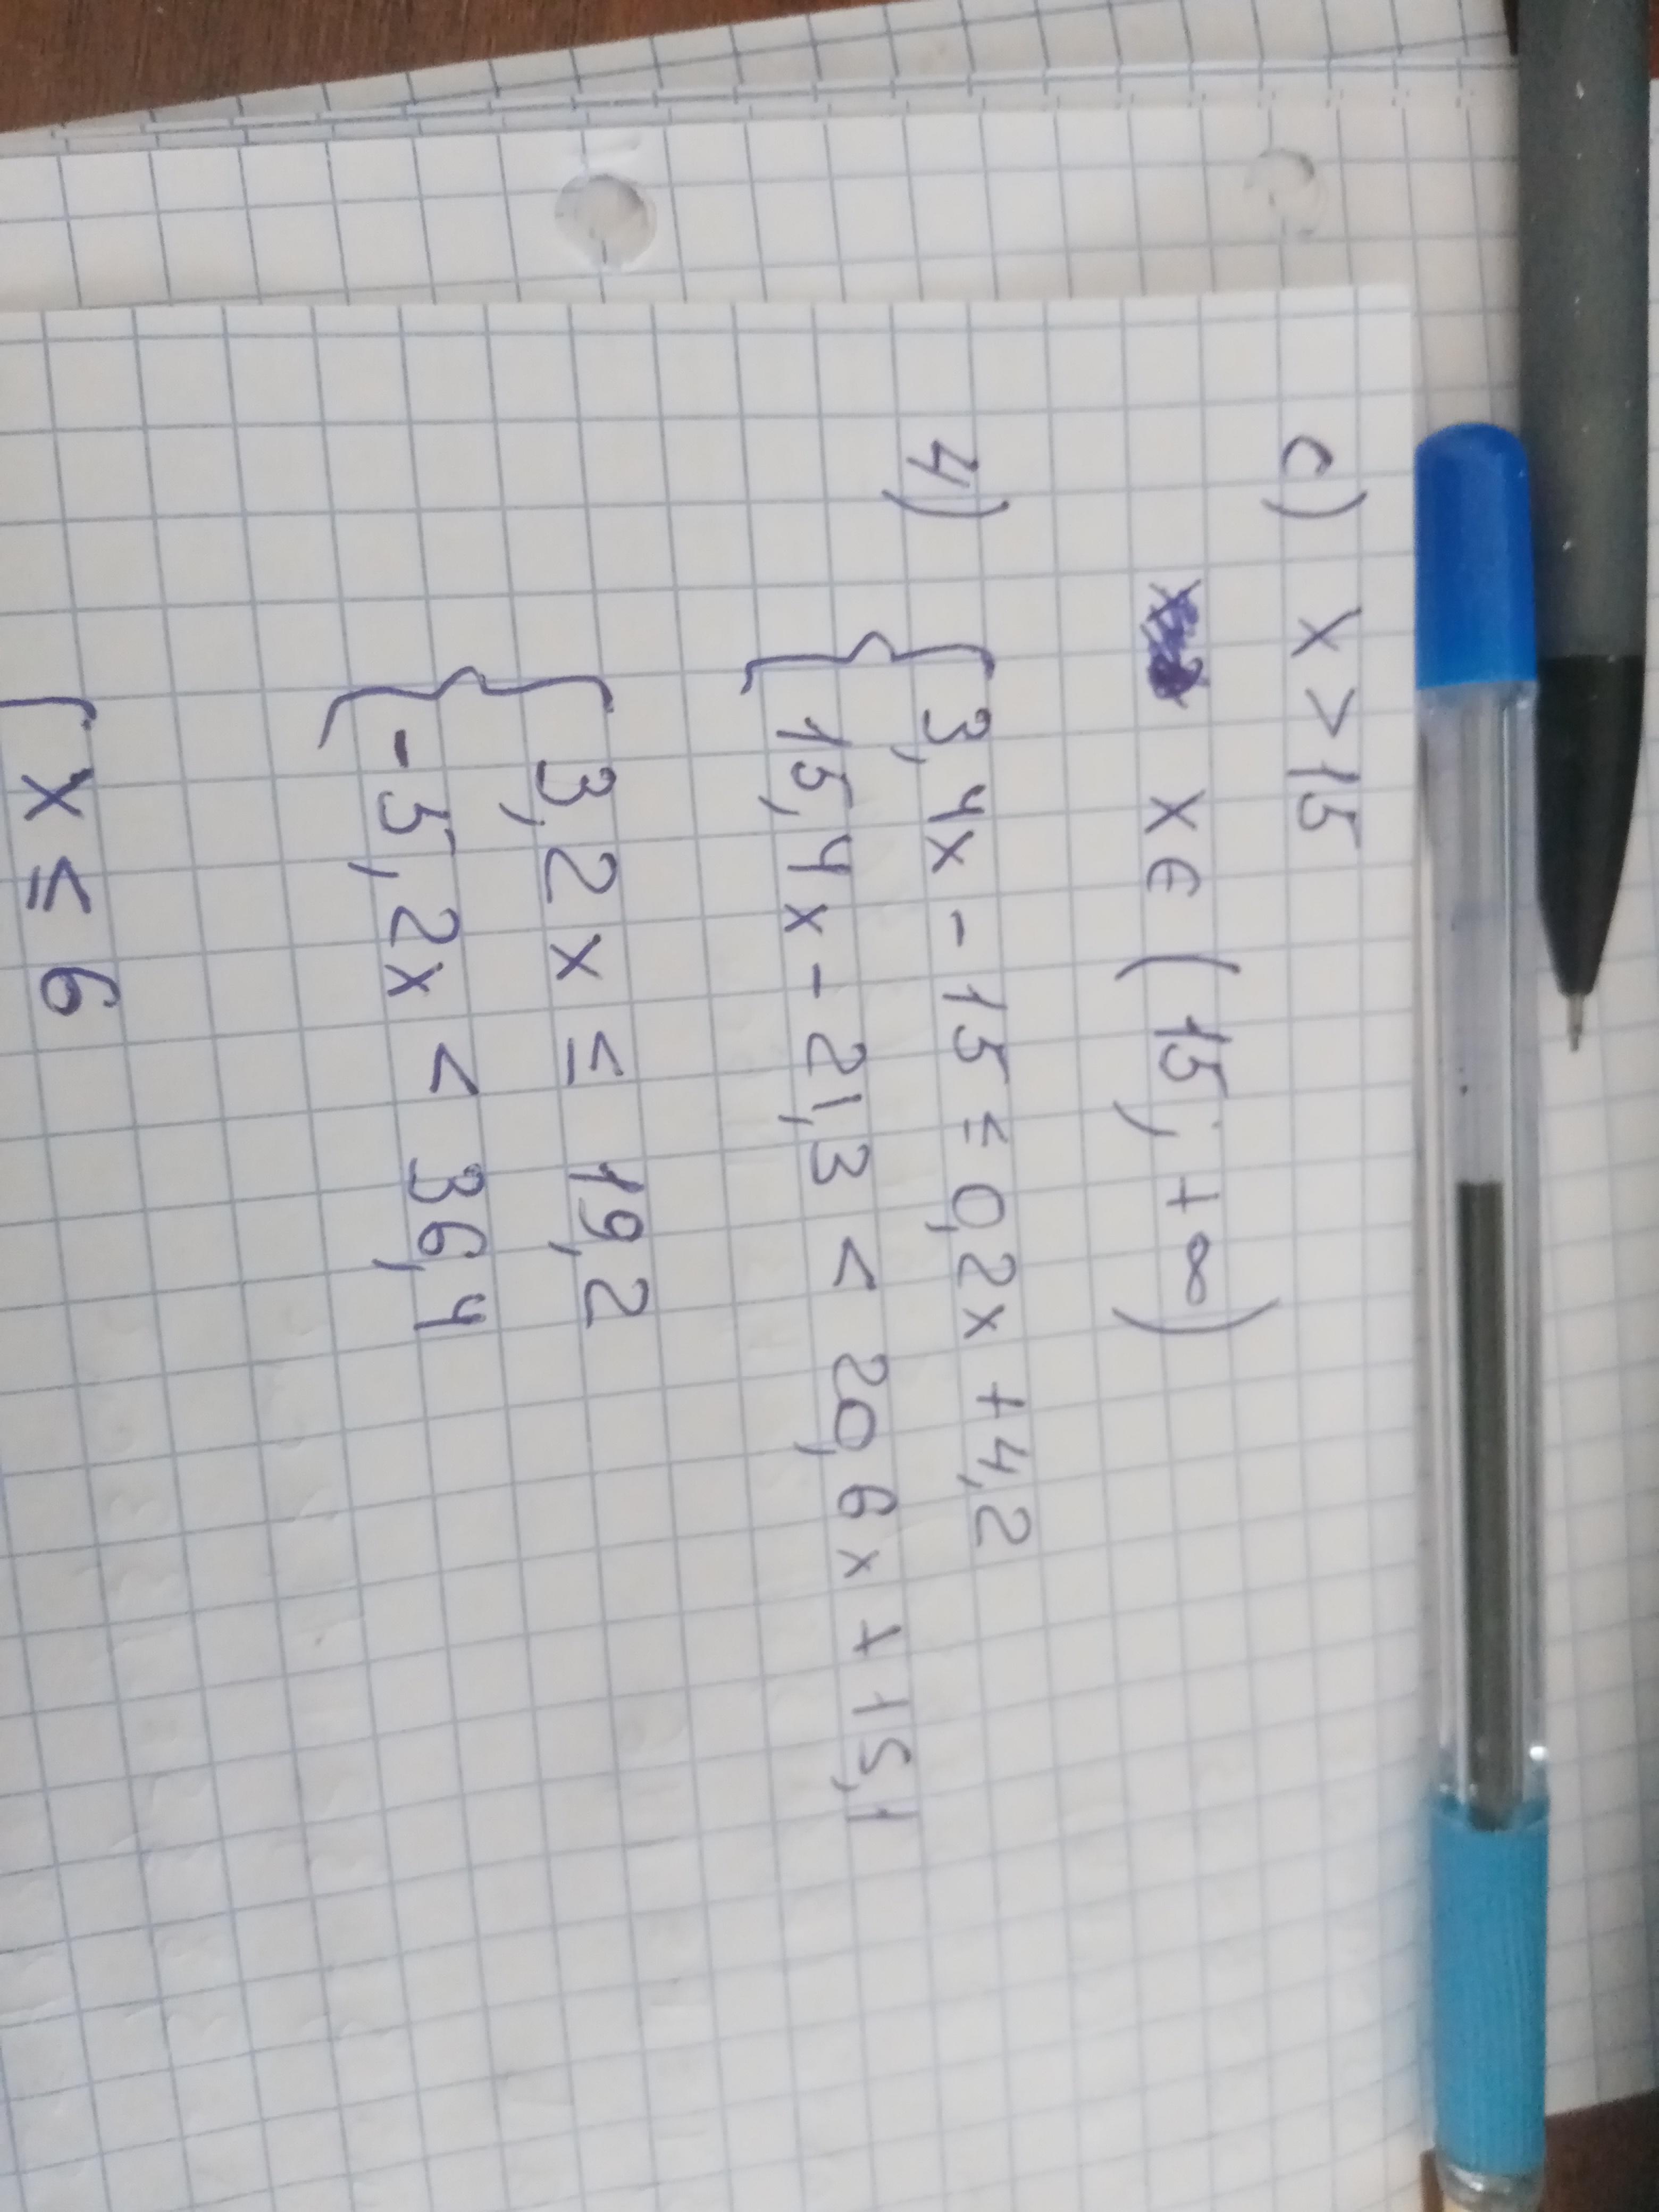 c) x > 15
x ∈ (15, +∞)
4) { 3,4x - 15 ≤ 0,2x + 4,2
15,4x - 21,3 < 20,6x + 15,1
{ 3,2x ≤ 19,2
-5,2x < 36,4
x ≤ 6